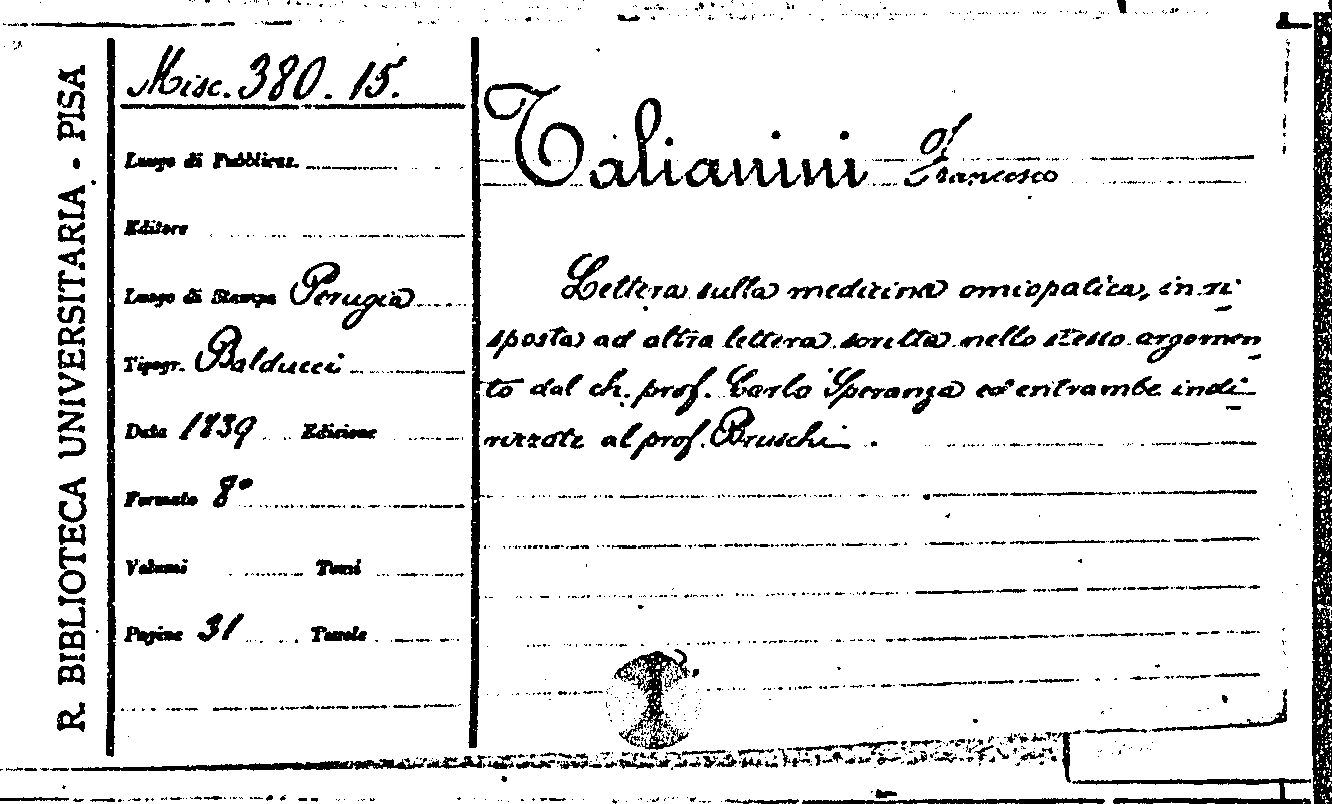 R. BIBLIOTECA UNIVERSITARIA - PISA
Misc. 380. 15.
Luogo di Pubblicaz.
Editore
Luogo di Stampa Perugia
Tipogr. Balducci
Data 1839 Edizione
Formato 8°
Volumi Tomi
Pagine 31 Tavole
Talianini Francesco
Lettera sulla medicina omiopatica, in ri
sposta ad altra lettera scritta nello stesso argomen
to dal ch. prof. Carlo Speranza ed entrambe indi
rizzate al prof. Bruschi.